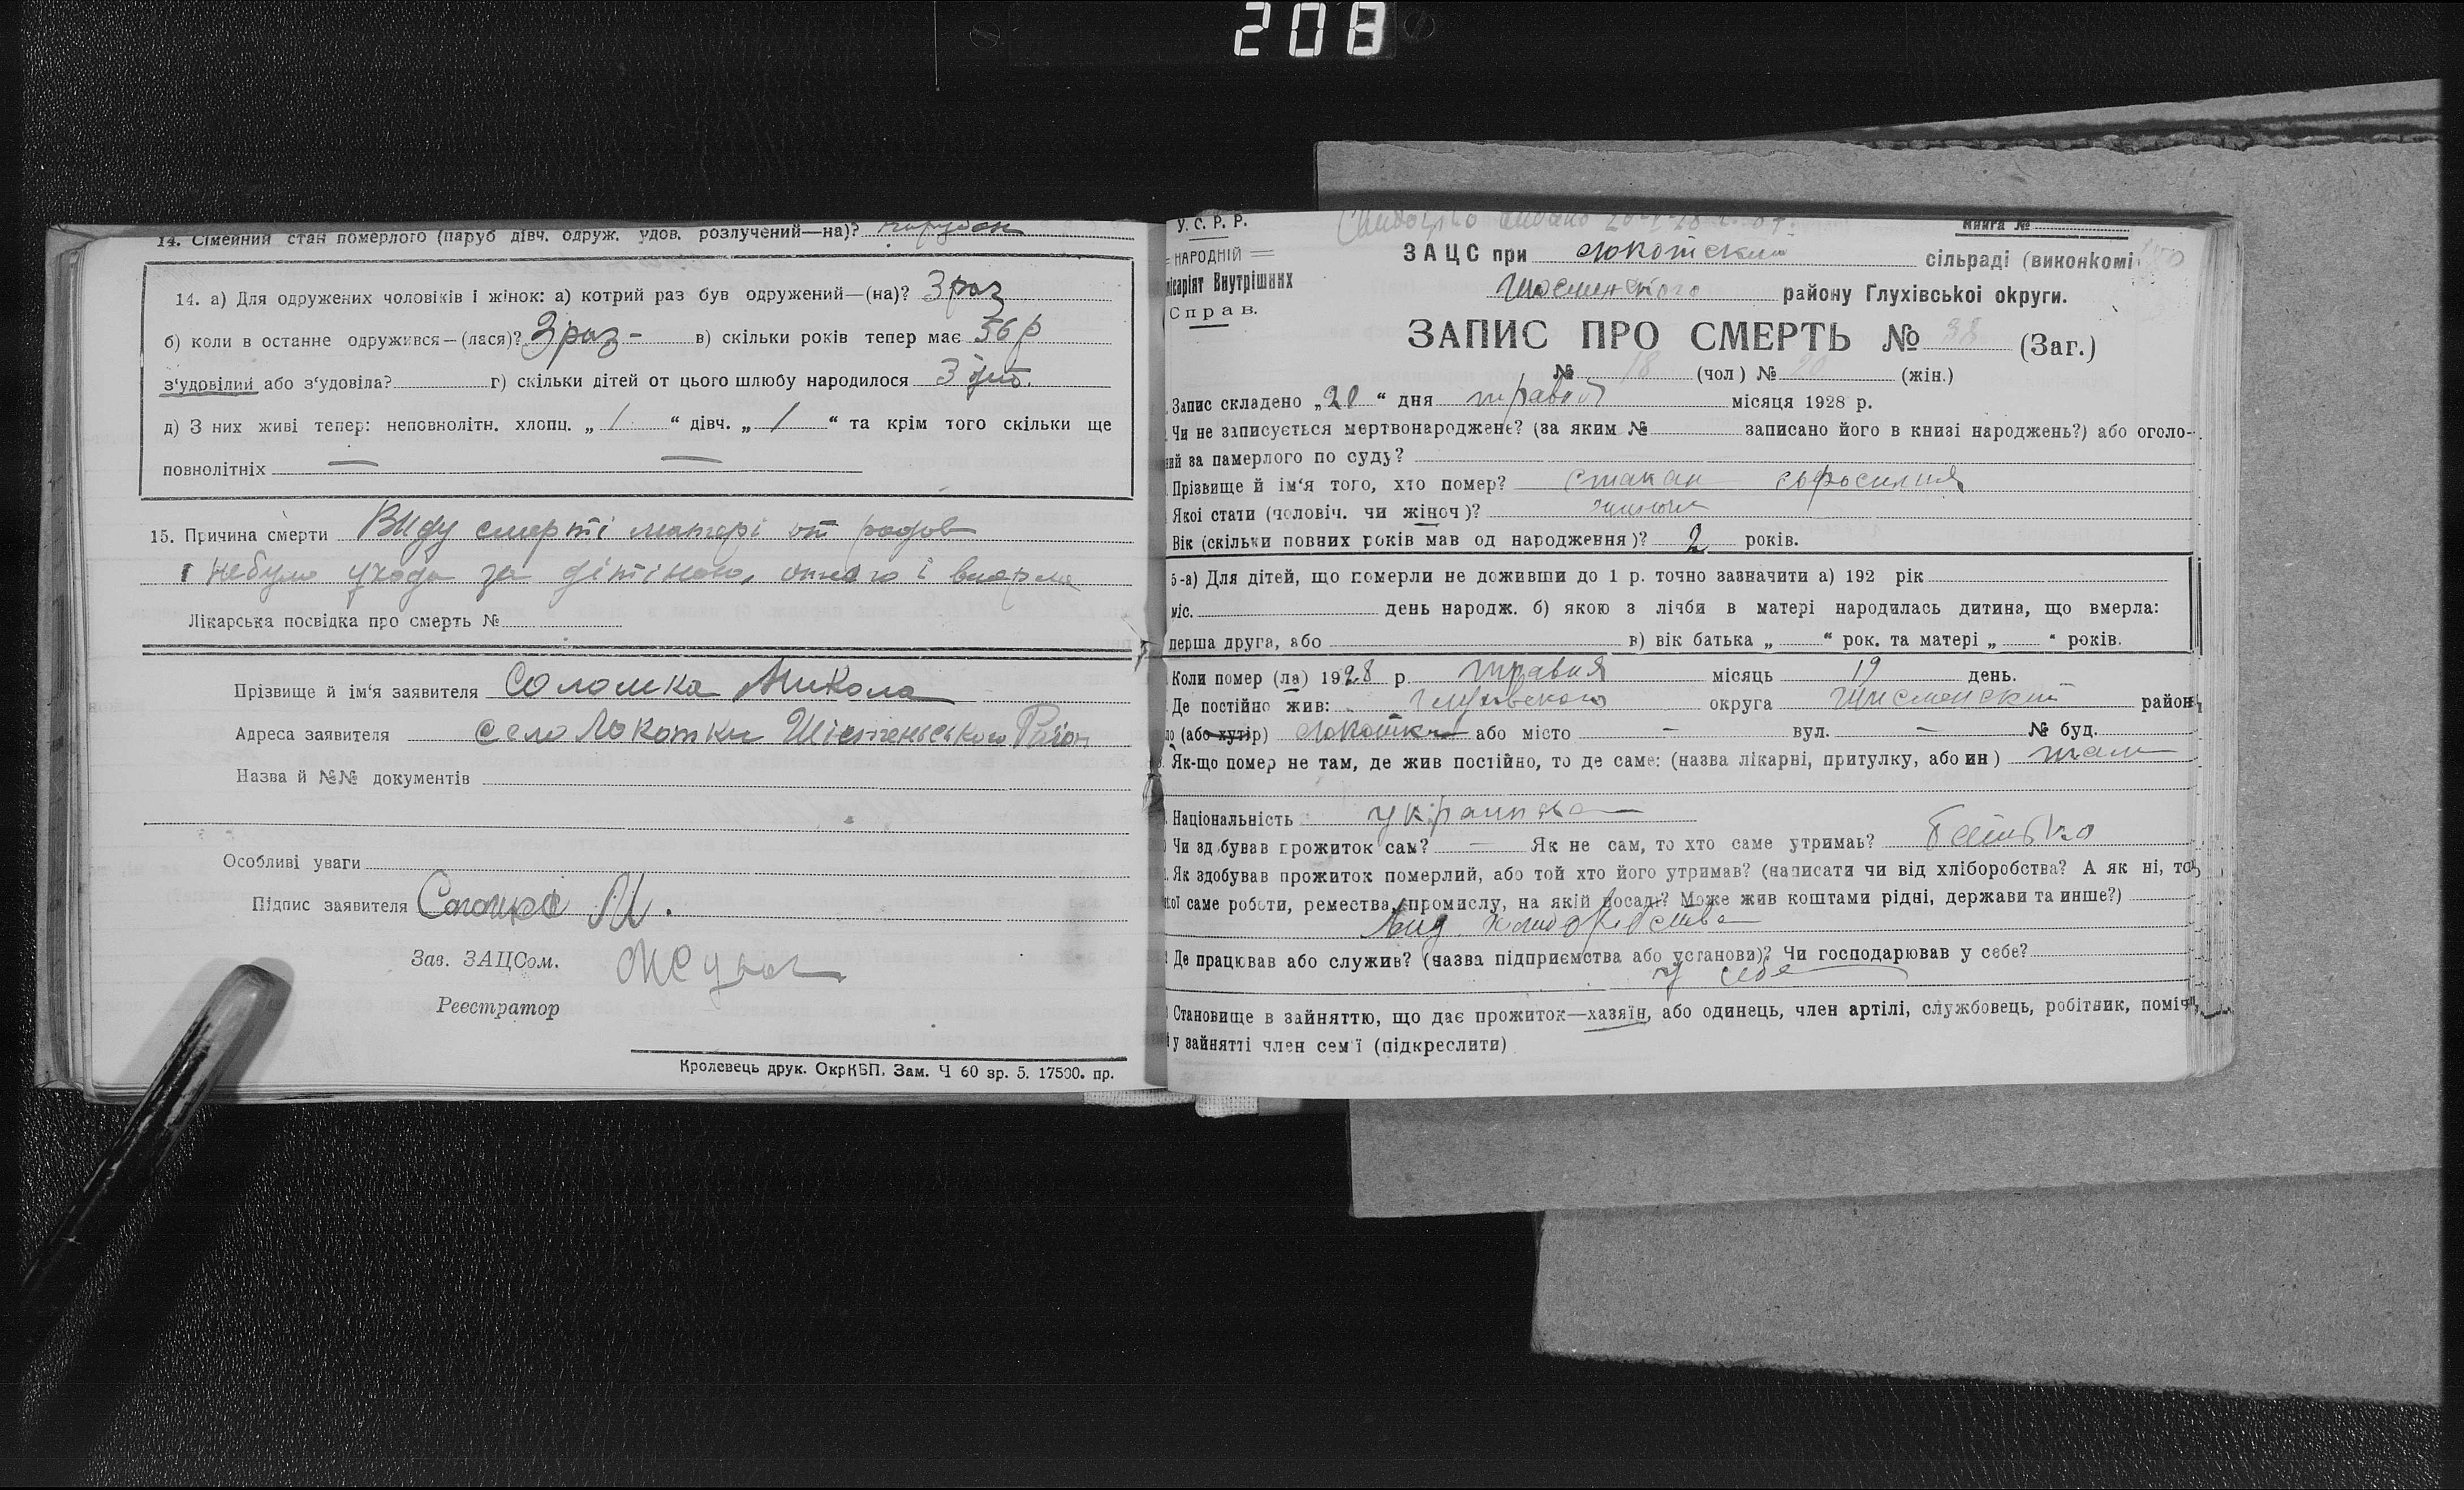 208
14. Сімейний стан померлого (паруб дівч. одруж. удов. розлучений—на)? парубок
14. а) Для одружених чоловіків і жінок: а) котрий раз був одружений—(на)? 3 раз
б) коли в останне одружився—(лася)? 3 раз - в) скільки років тепер має 56 р
з'удовілий або з'удовіла? г) скільки дітей от цього шлюбу народилося 3 діт.
д) З них живі тепер: неповнолітн. хлопц. „ 1 “ дівч. „ 1 “ та крім того скільки ще
повнолітніх — —
15. Причина смерти Виду смерті матері от родов
небуло ухода за дітіною, отого і вмерла
Лікарська посвідка про смерть №
Прізвище й ім'я заявителя Соломка Микола
Адреса заявителя село Локотки Шістеньського Район
Назва й №№ документів
Особливі уваги
Підпис заявителя М.
Зав. ЗАЦСом.
Реєстратор
Кролевець друк. ОкрКВП. Зам. Ч 60 зр. 5. 17500. пр.
У. С. Р. Р.
НАРОДНІЙ
місаріят Внутрішних
Справ.
Книга №
ЗАЦС при Локотском сільраді (виконкомі
району Глухівської округи.
ЗАПИС ПРО СМЕРТЬ № 38 (Заг.)
№ 18 (чол) № 20 (жін.)
Запис складено „20“ дня травня місяця 1928 р.
Чи не записується мертвонароджене? (за яким № записано його в книзі народжень?) або оголо-
ний за памерлого по суду?
Прізвище й ім'я того, хто помер? Стакан Єфросиния
Якої стати (чоловіч. чи жіноч)? жиноча
Вік (скільки повних років мав од народження)? 2 років.
5-а) Для дітей, що померли не доживши до 1 р. точно зазначити а) 192 рік
міс. день народж. б) якою з лічби в матері народилась дитина, що вмерла:
перша друга, або в) вік батька „ “ рок. та матері „ “ років.
Коли помер (ла) 1928 р. травня місяць 19 день.
Де постійно жив: Глухівского округа район
ло (або хутір) Локотки або місто — вул. — № буд.
Як-що помер не там, де жив постійно, то де саме: (назва лікарні, притулку, або ин) там
Національність украинка
Чи здобував прожиток сам? — Як не сам, то хто саме утримав? батько
Як здобував прожиток померлий, або той хто його утримав? (написати чи від хліборобства? А як ні, то
кої саме роботи, ремества, промислу, на якій посаді? Може жив коштами рідні, держави та инше?)
Вид хлиборобства
Де працював або служив? (назва підприємства або установи)? Чи господарював у себе?
у себе
Становище в зайняттю, що дає прожиток—хазяїн, або одинець, член артілі, службовець, робітник, поміч-
у зайнятті член сем'ї (підкреслити)